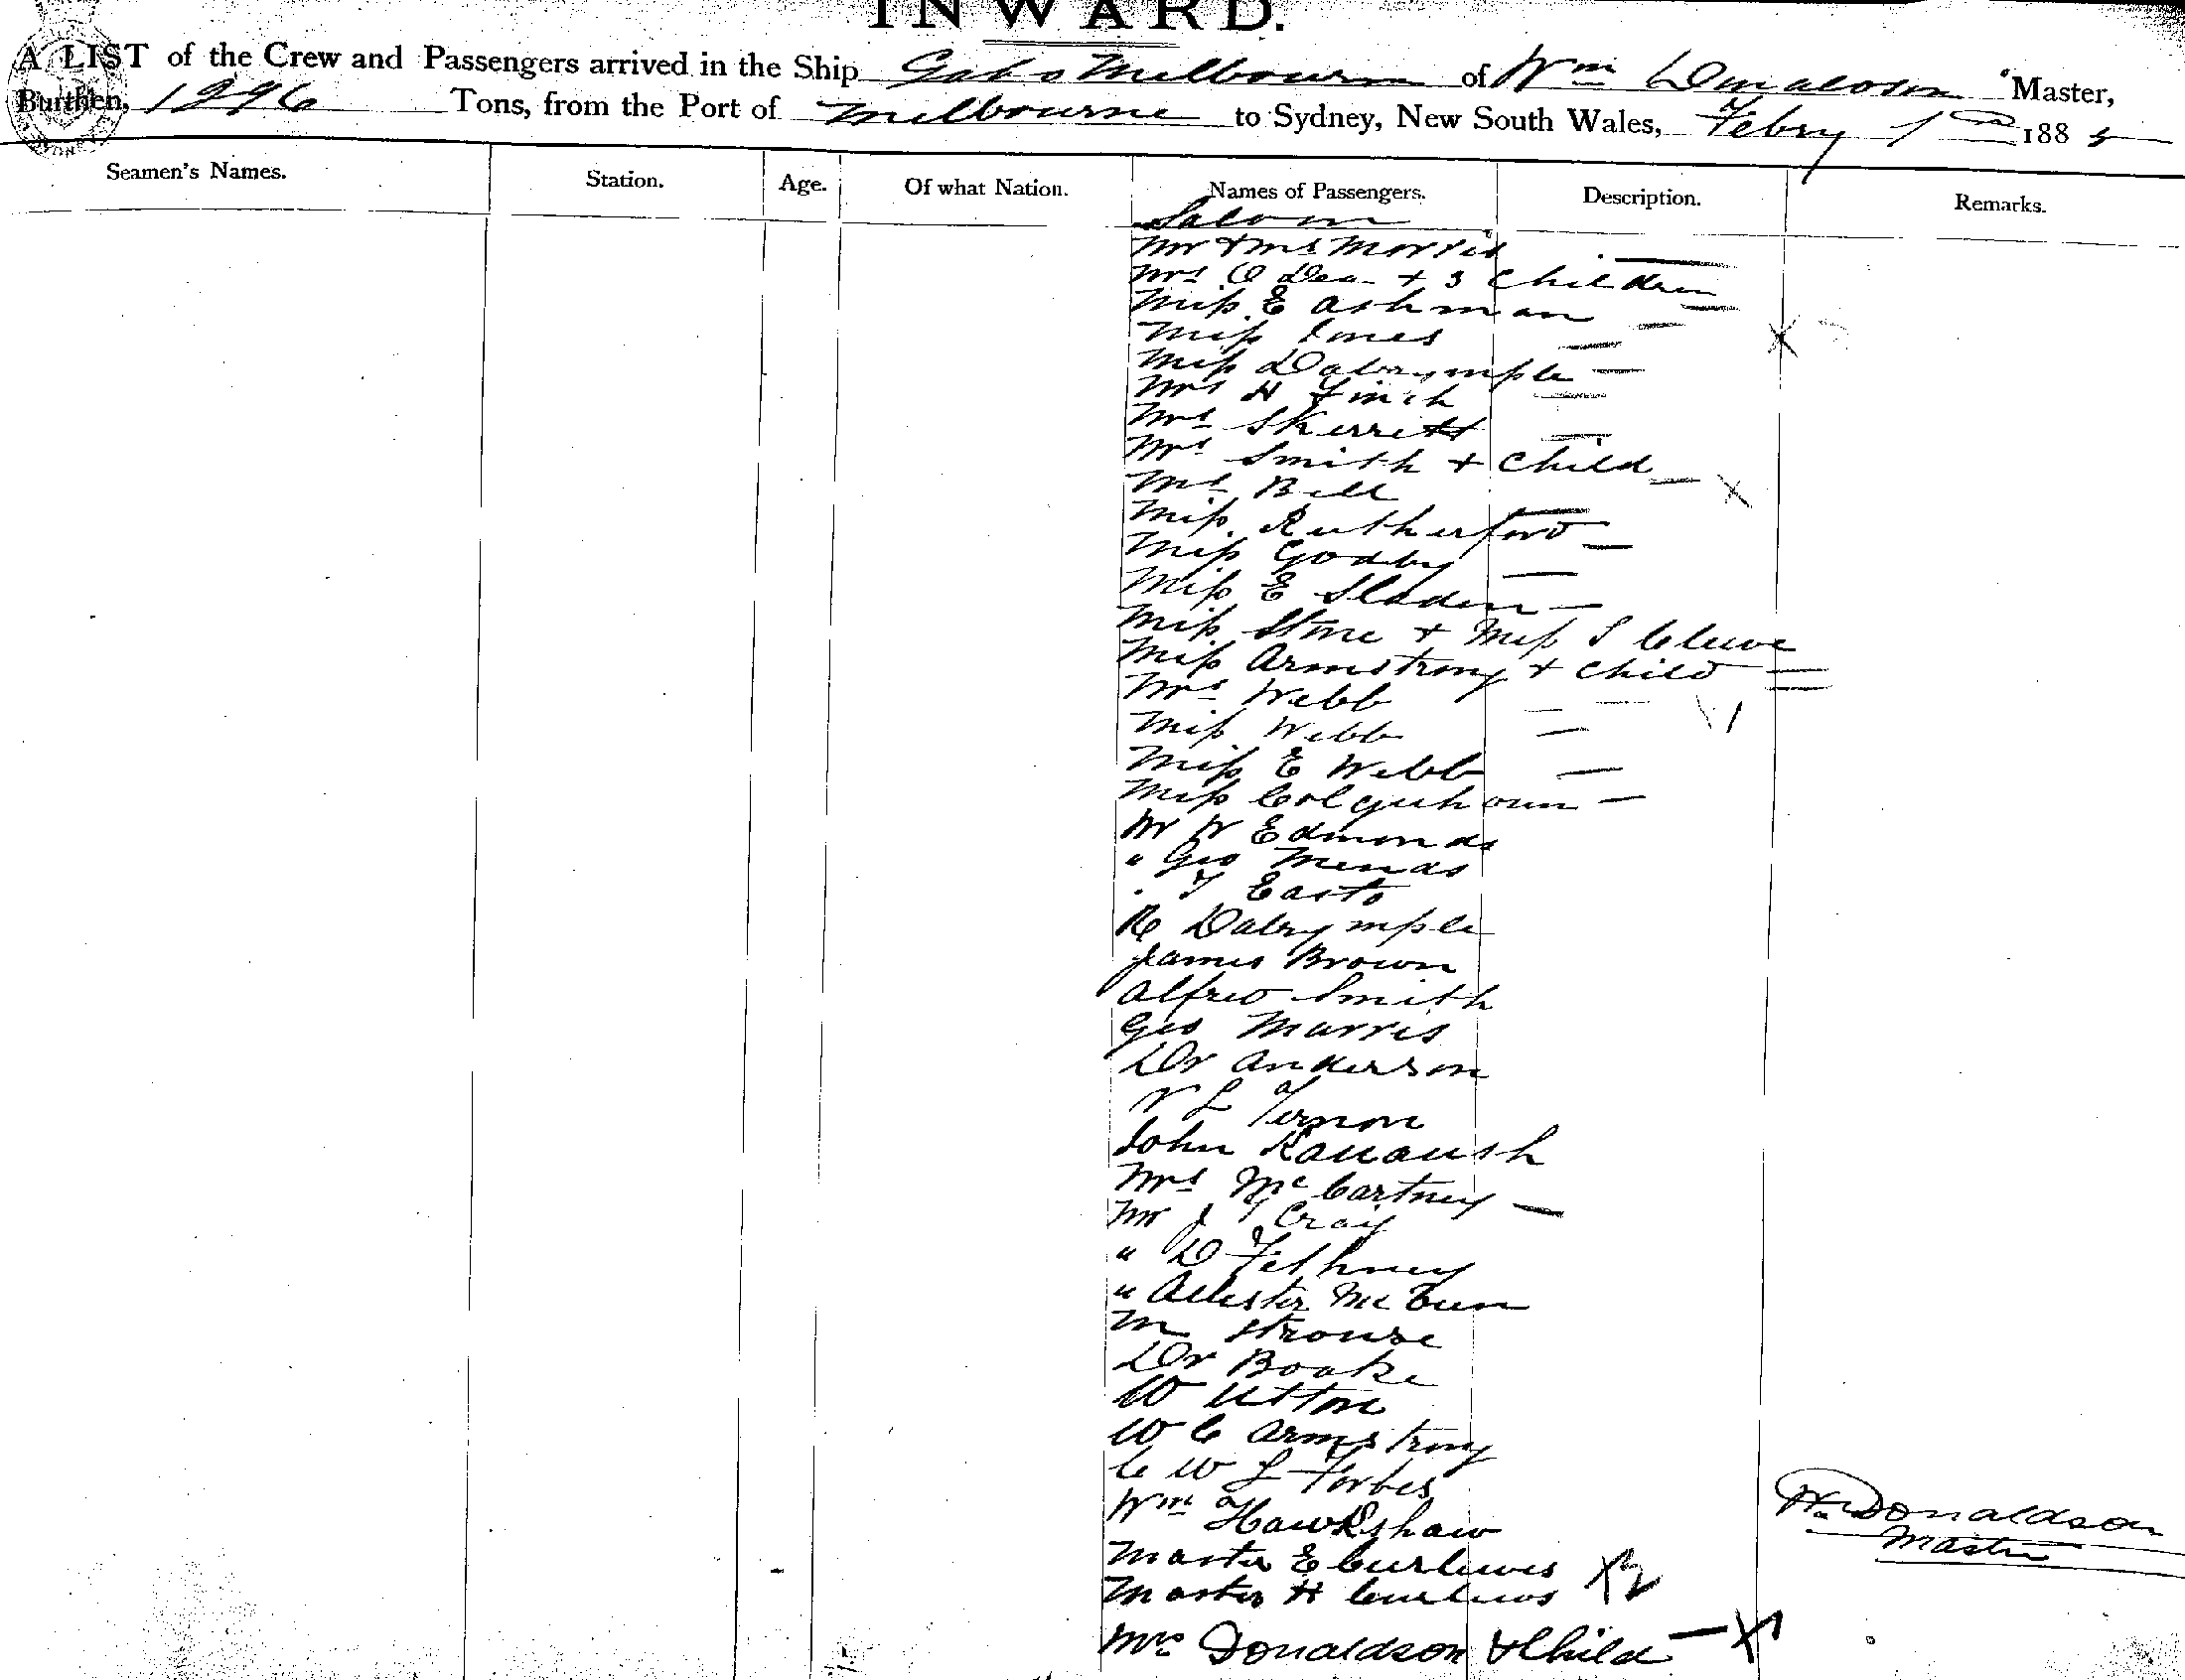 INWARD.
A LIST of the Crew and Passengers arrived in the Ship of Wm Donaldson Master,
Burthen, Tons, from the Port of Melbourne to Sydney, New South Wales, Febry 1 1885
Seamen's Names. Station. Age. Of what Nation. Names of Passengers. Description. Remarks.
Saloon
Mr & Mrs Morris
Mrs O Dea + 3 Children
Miss E Ashman
Miss Jones
Miss Dalrymple
Mrs H Finch
Mrs Skerrett
Mrs Smith + Child
Mrs Bell
Miss Rutherford
Miss Godby
Miss E Sladen
Miss Stone + Miss S
Miss Armstrong + Child
Mrs Webb
Miss Webb
Miss E Webb
Miss Colquhoun
Mr W Edmonds
" Geo
T Easto
R Dalrymple
James Brown
Alfred Smith
Geo Marris
Dr Anderson
V L Vernon
John Kavanaugh
Mrs McCartney
Mr J Craig
" D Fethney
" Alester
M Strouse
Dr Boake
W Utton
W C Armstrong
C W L Forbes
Wm Hawkshaw
Master E Curlewis X2
Master H Curlewis
Mrs Donaldson & Child X1
W. Donaldson
Master